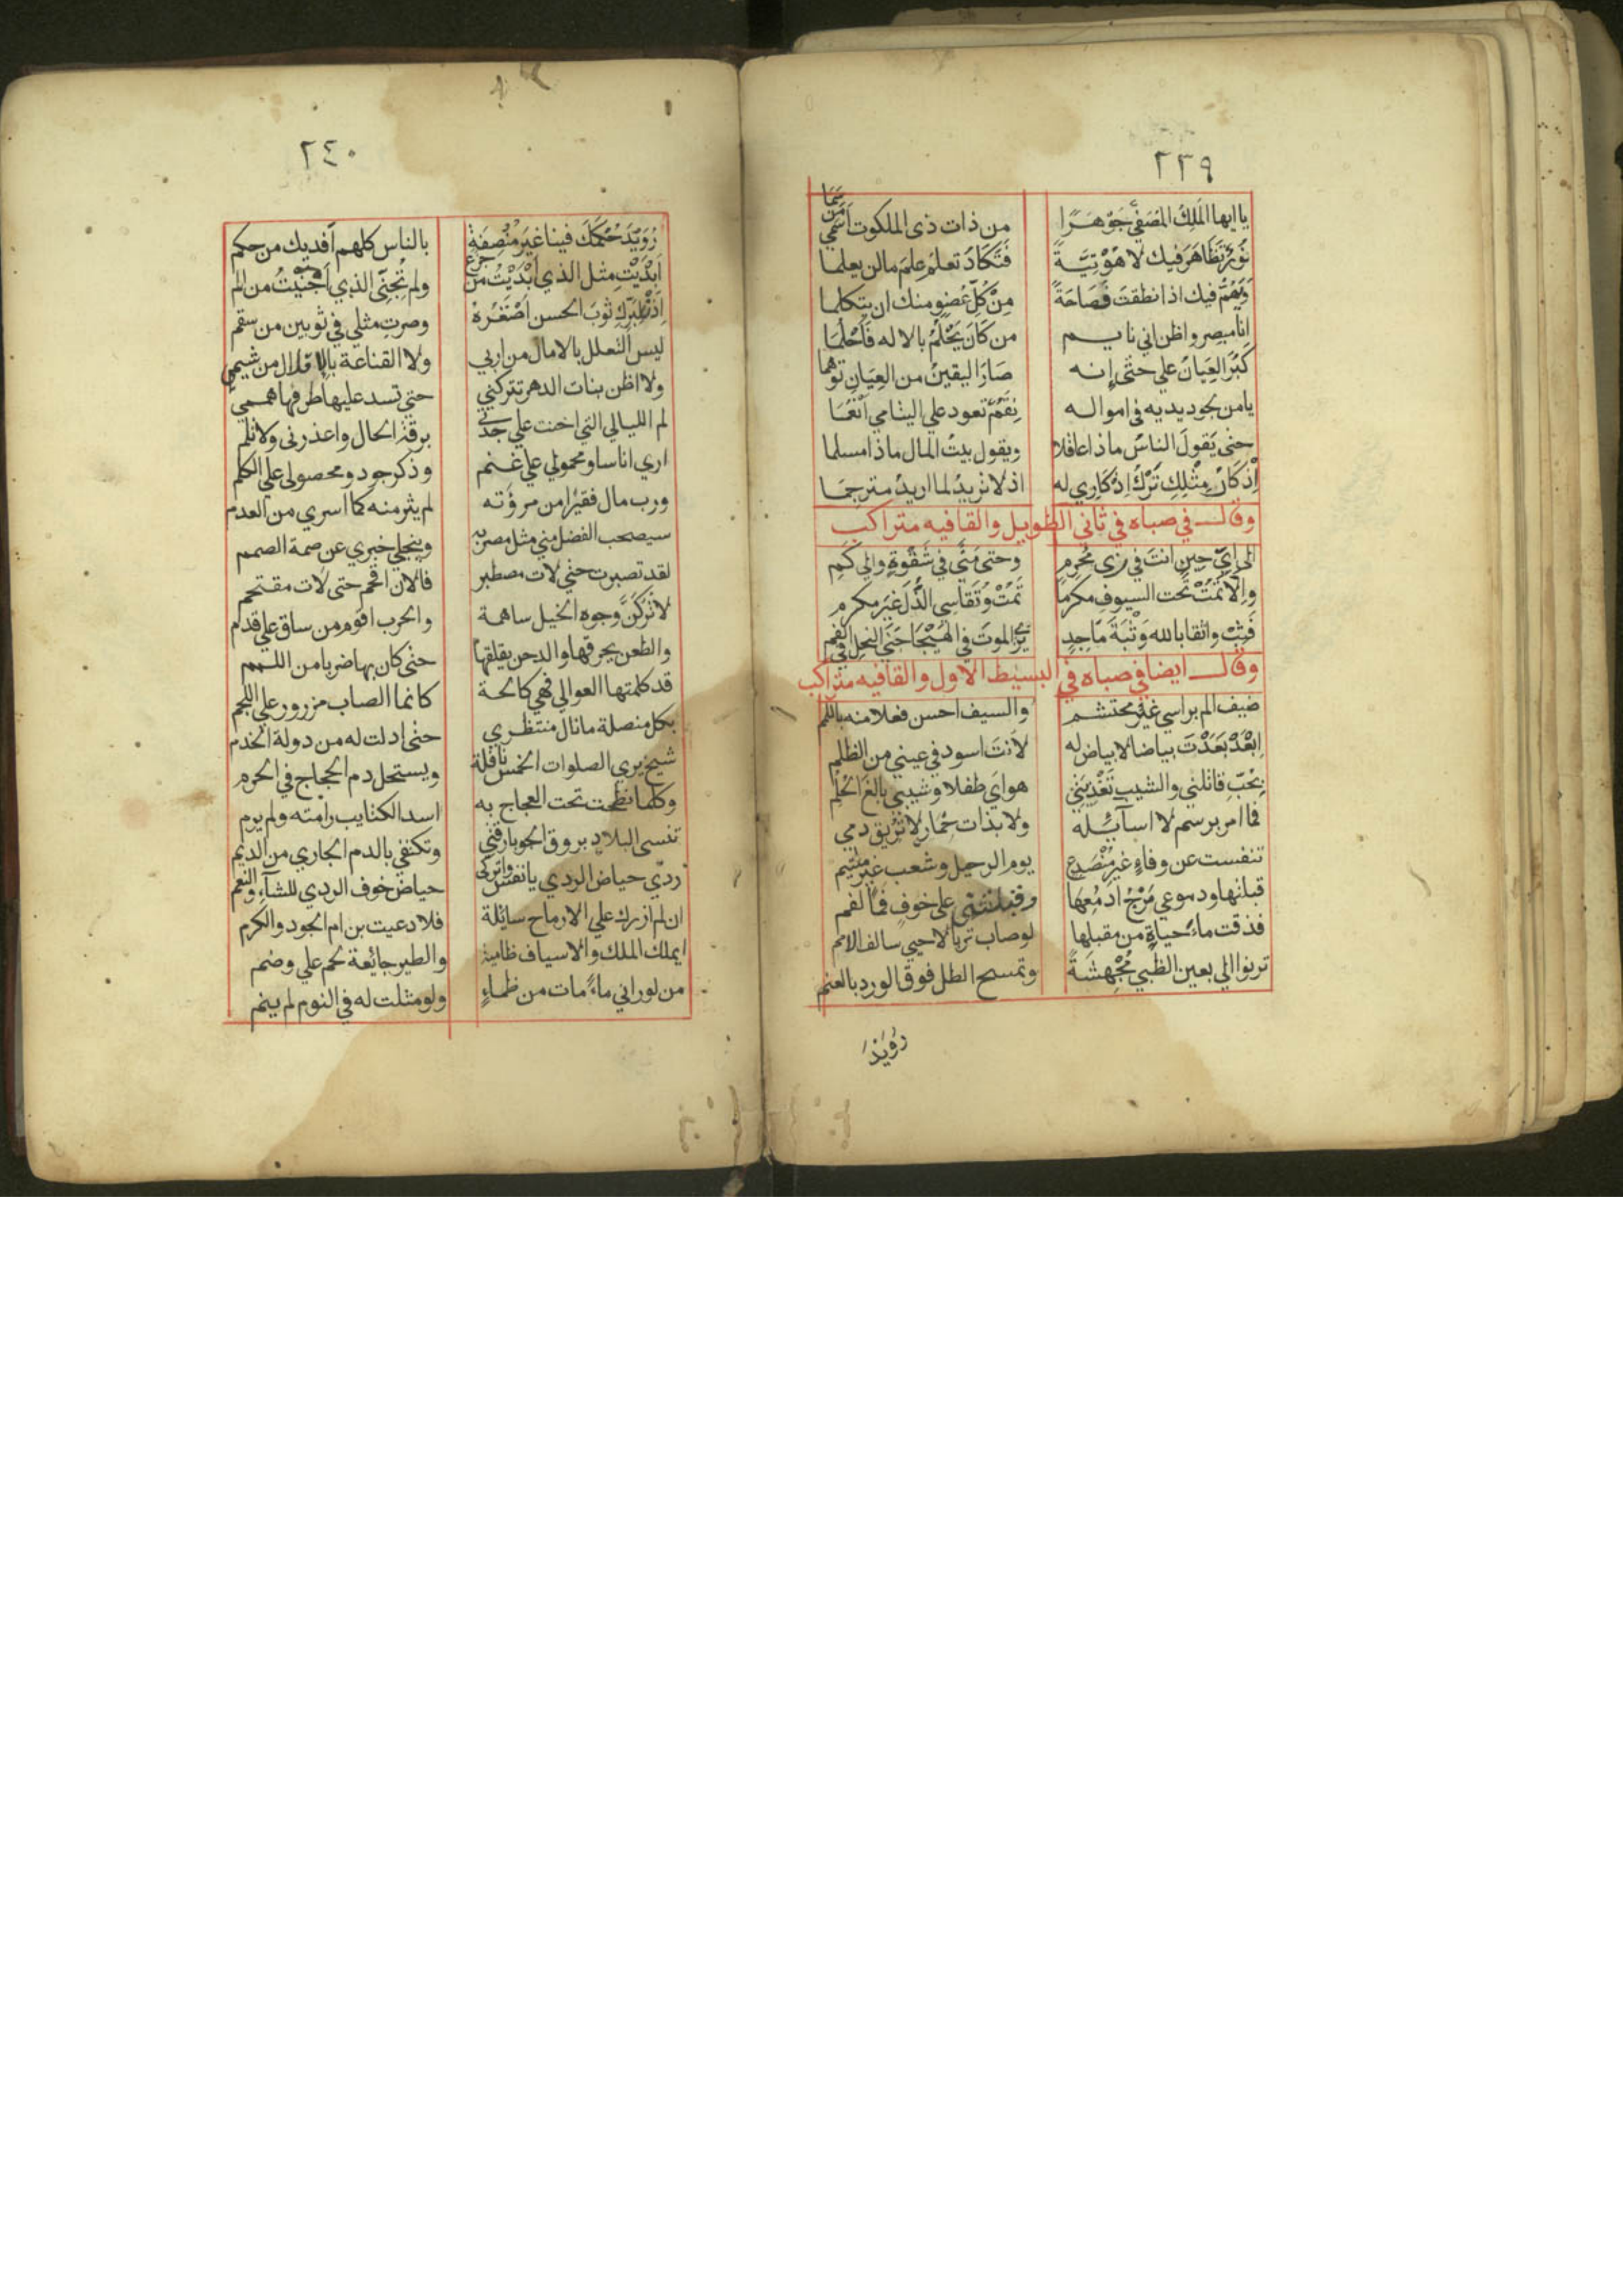 ٢٣٩
يا ايها المَلِكُ المُصَفّي جَوْهَرًا من ذات ذى الملكوت اَسْمي مَن سَمَا
نُورٌ تَظَاهَرَ فيك لاهُوتيَّةً فَتَكَادُ تعلمُ عِلمَ مالن يعلما
وَيَهُمُّ فيك اذا نطقتَ فَصَاحَةً مِنْ كُلّ عُضوٍ منك ان يتكلما
انا مبصر واظن اني نايم من كَانَ يَحْلُمُ بالاله فَاَحْلُمَا
كَبُرَ العِيَانُ علي حتى إنه صَارَ اليقينُ من العِيَانِ توهما
يامن بجود يديه فى امواله نِقَمٌ تعود علي اليتامي اَنْعُمَا
حتى يَقولَ الناسُ ماذا عاقلا ويقول بيتُ المال ماذا مسلما
اِذْ كَانَ مِثْلِكَ تَرْكُ اِذْكَارِي له اذ لا تريدُ لما اريدُ مترجمَا
وقال في صباه في ثاني الطويل والقافيه متراكب
الى ايّ حين انتَ في زي مُحْرِمٍ وحتى مَتَّى في شَقْوَةٍ والى كَمِ
والّا تَمُتْ تحت السيوفِ مكرمًا تَمُتْ وَتُقَاسِي الذُّلَ غيرَ مكرم
فَثِبْ واثقا بالله وَثْبَةَ مَاجِدٍ يَرَى الموتَ في الهَيْجَا جَنَى النحل في الفم
وقال ايضا في صباه في البسيط الاول والقافيه متراكب
ضيف الم براسي غير محتشم والسيف احسن فعلا منه باللمم
اِبْعَدْ بَعَدْتَ بياضا لا بياض له لاَنتَ اسود في عيني من الظلم
بِحُبّ قاتلتي والشيب تَغْذِيَتي هوايَ طفلا وشيبي بالغَ الحُلُمِ
فما امر برسم لا اسآيِله ولا بذات خمار لا تُرِيق دمي
تنفست عن وفاءٍ غير مُنْصَدِعٍ يوم الرحيل وشعب غير ملتيم
قبلتها ودموعي مَزْجُ ادمُعِهَا وقبلتني على خوفٍ فمًا لفم
فذقت ماءَ حياةٍ من مقبلها لو صاب تربا لاحيي سالف الامم
ترنوا الي بعين الظبي مُجْهِشَةً وتمسح الطل فوق الورد بالعنم
رُوَيْدَ
٢٤٠
رُوَيْدَ حُكمَكَ فينا غيرَ مُنْصِفَةٍ بالناس كلهم اَفديك من حكم
اَبدَيْتِ مثل الذي اَبْدَيْتُ من جزع ولم تُجِنّى الذي اَجْنَيْتُ من الم
اِذَنْ لبَزّكِ ثوبَ الحسن اَصْغَرُهُ وصرتِ مثلي في ثوبين من سقم
ليس التعلل بالامال من اربي ولا القناعة بالاقلال من شيمي
ولا اظن بنات الدهر تتركني حتى تسد عليها طرفها هممي
لم الليالي التي اخنت علي جدتي برقة الحال واعذرنى ولا تلم
اري اناسا ومحمولي علي غنم وذكر جود ومحصولى علي الكلم
ورب مال فقيرا من مروَته لم يثر منه كما اسري من العدم
سيصحب الفضل مني مثل مضربه وينجلي خبري عن صمة الصمم
لقد تصبرت حتي لات مصطبر فالان اقحم حتى لَات مقتحم
لاتركَنَّ وجوه الخيل ساهمة والحرب اقوم من ساق علي قدم
والطعن يحرقها والدجن يقلقها حتى كان بها ضربا من اللمم
قد كلمتها العوالي فهي كالحة كانما الصاب مزرور علي اللجم
بكل منصلة مانال منتظري حتى ادلت له من دولة الخدم
شيخ يري الصلوات الخمس نافلة ويستحل دم الحجاج في الحرم
وكلما نطحت تحت العجاج به اسد الكتايب رامته ولم يرم
تنسى البلاد بروق الجو بارقتي وتكتفي بالدم الجاري من الديم
ردّي حياض الردي يانفس واتركى حياض خوف الردي للشآءِ والنعم
ان لم ازرك علي الارماح سائلة فلا دعيت بن ام الجود والكرم
ايملك الملك والاسياف ظامية والطير جائعة لحم علي وضم
من لو راني ماءً مات من ظماءٍ ولو مثلت له في النوم لم ينم